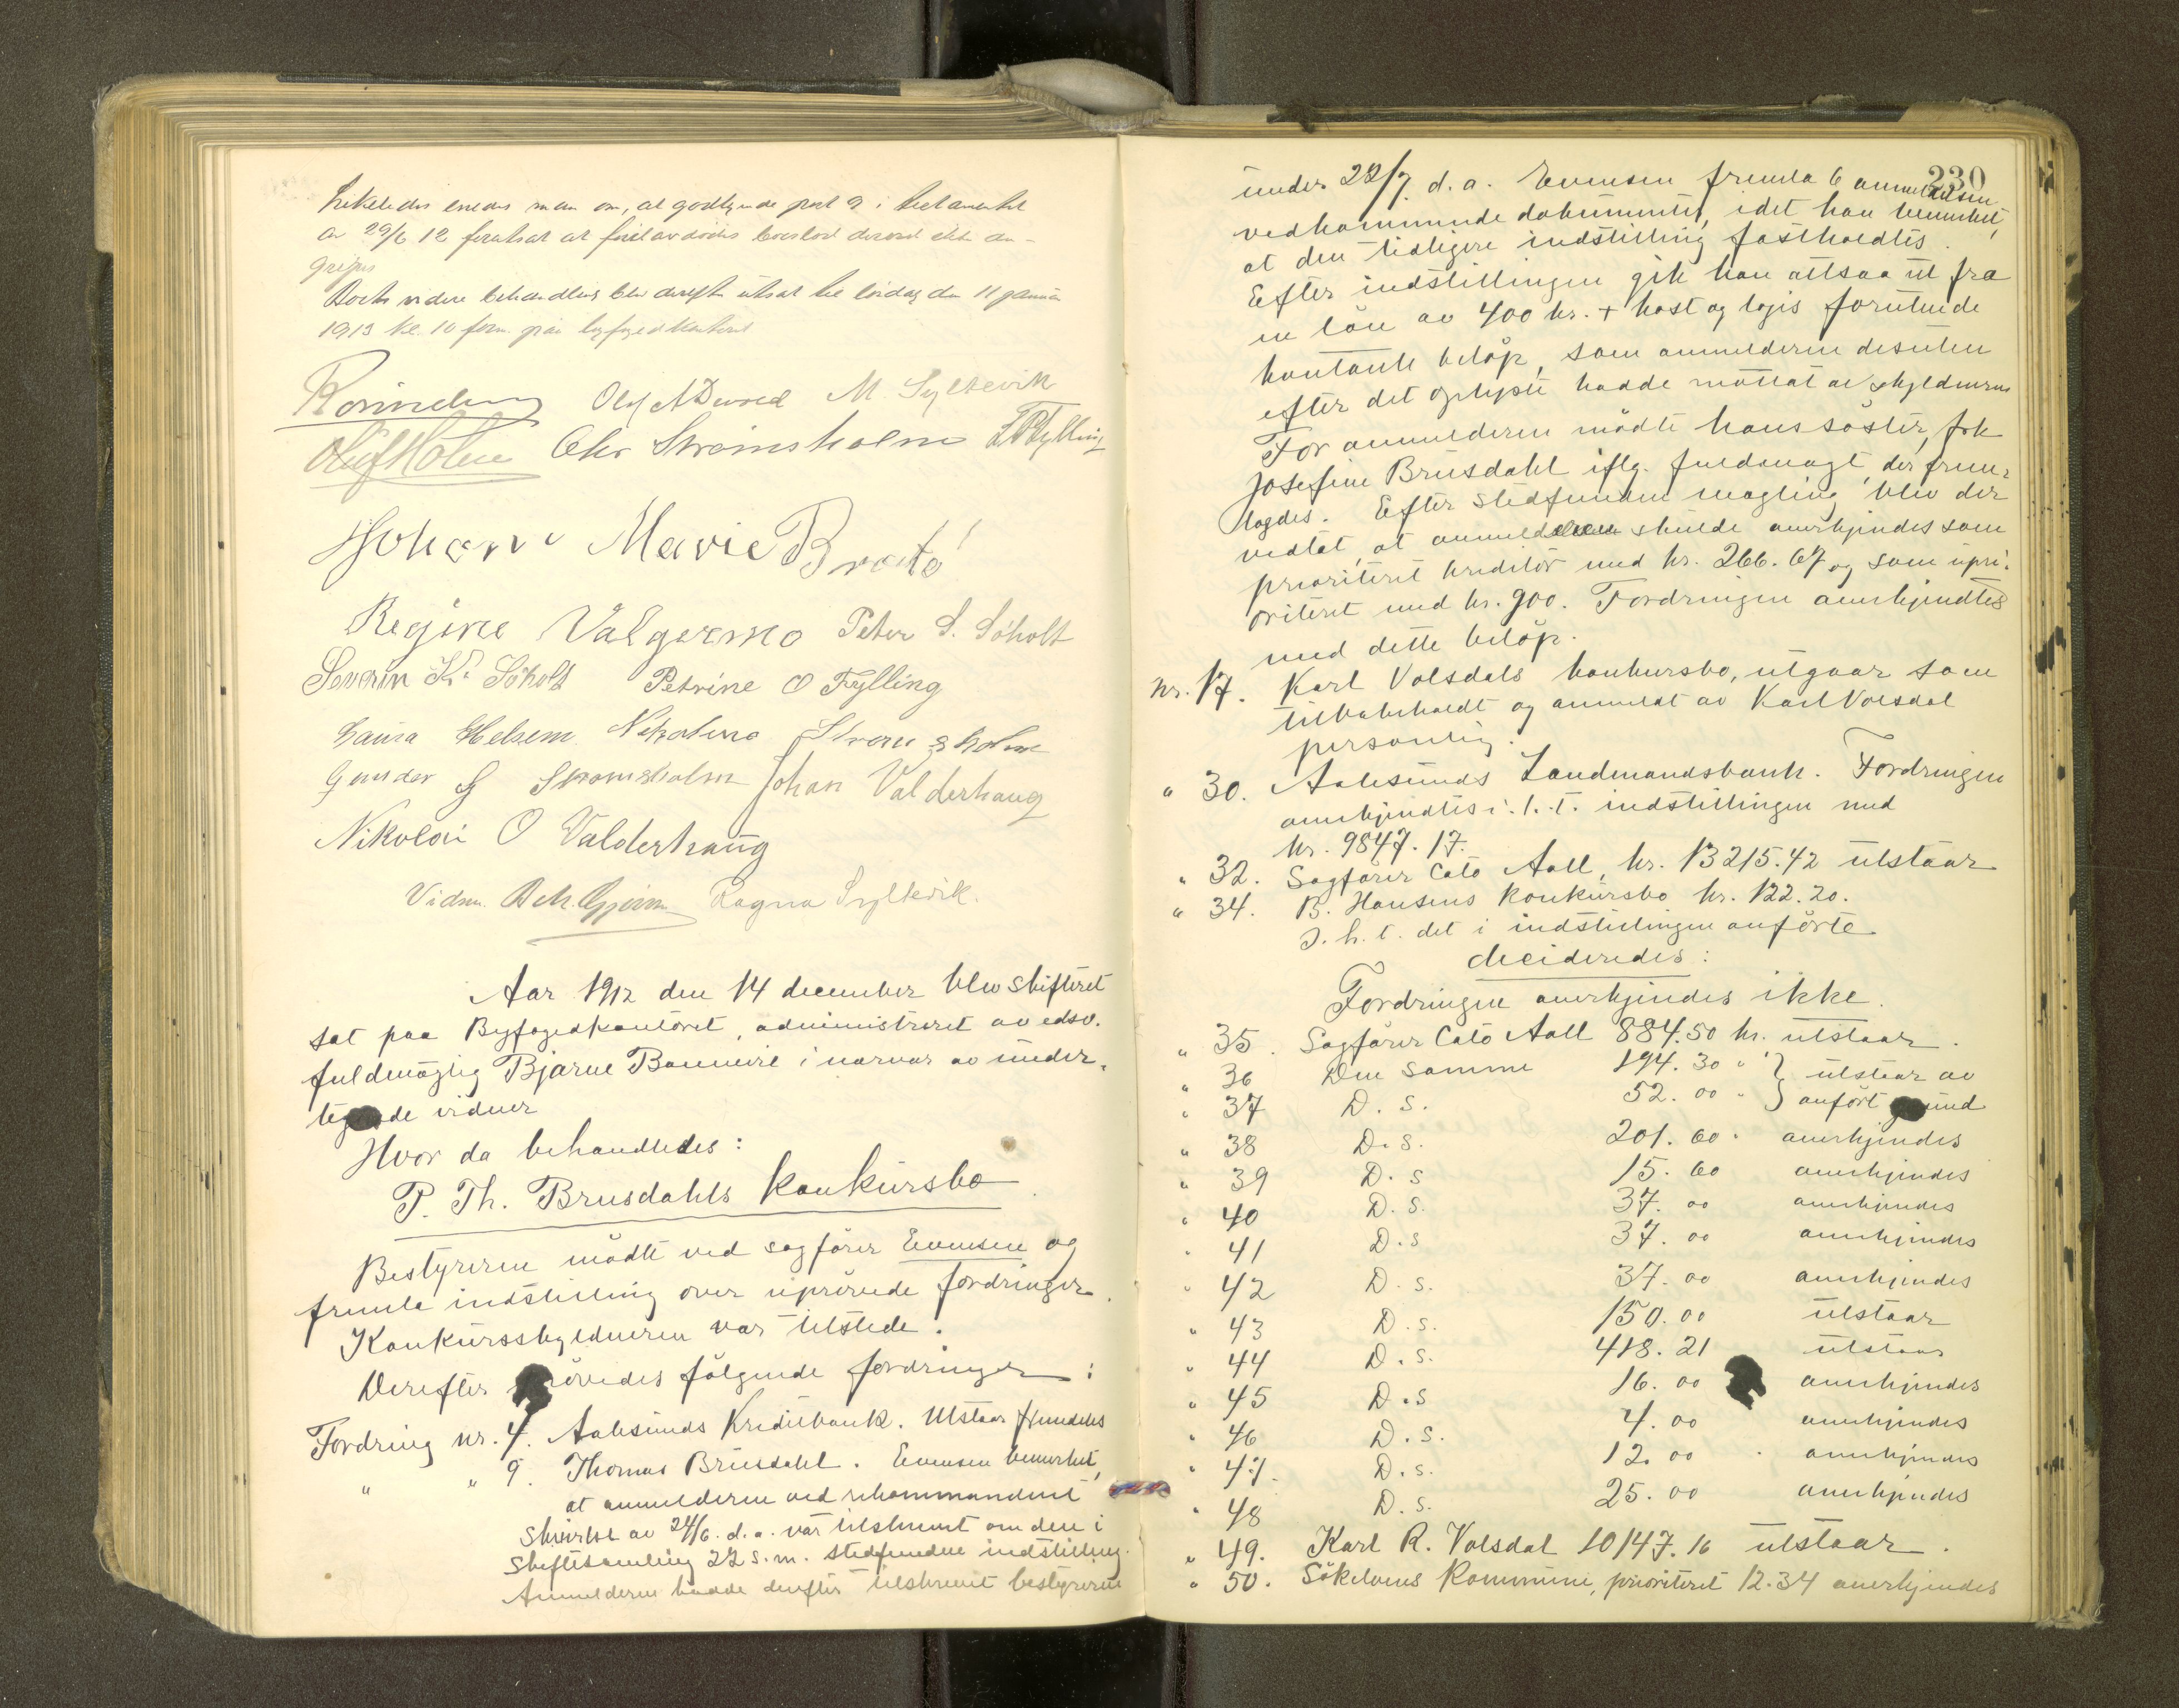 Likeledes enedes man om, at godkjende post 9 i testamentet
av 29/6 12 forutsat at förstavdödes boeslod derved ikke an-
gripes
Boets videre behandling blev derefter utsat til lördag den 11 januar
1913 kl. 10 form. paa byfogedkontoret
M. Syltevik
Olaf Holm Chr Strömsholm L P Fylling
Johan Marie Bratö
Regine Valgermo Peter S. Söholt
Severin K. Söholt Petrine O Fylling
Laura Helsem Nikoline Strömsholm
Gunder G Strömsholm Johan Valderhaug
Nikolai O Valderhaug
Vidne. Ragna Syltevik.
Aar 1912 den 14 december blev skifteret
sat paa Byfogedkontoret, administreret av edsv.
fuldmægtig Bjarne Bonnevie i nærvær av under-
tegnede vidner
Hvor da behandledes:
P. Th. Brusdahls konkursbo
Bestyreren mödte ved sagförer Evensen og
fremla indstilling over uprövede fordringer.
Konkursskyldneren var tilstede.
Derefter prövedes fölgende fordringer:
Fordring nr. 4. Aalesunds Kreditbank. Utstaar fremdeles
" " 9. Thomas Brusdahl. Evensen bemerket,
at anmelderen ved rekommandert
skrivelse av 24/6. d.a. var tilskrevet om den i
skiftesamling 22 s.m. stedfundne indstilling.
Anmelderen hadde derefter tilskrevet bestyreren
230
under 22/7 d.a. Evensen fremla 6 anmeldelsen
vedkommende dokumenter, idet han bemerket,
at den tidligere indstilling fastholdtes.
Efter indstillingen gik han altsaa ut fra
en lön av 400 kr. + kost og logis forutende
kontante belöp, som anmelderen desuten
efter det oplyste hadde mottat av skyldneren
For anmelderen mödte hans söster, frk
Josefine Brusdahl iflg. fuldmagt, der frem-
lagdes. Efter stedfunden mægling blev der
vedtat, at anmelderen skulde anerkjendes som
prioriteret kreditor med kr. 266.67 og som upri-
oriteret med kr. 900. Fordringen anerkjendtes
med dette belöp.
nr. 17. Karl Volsdals konkursbo, utgaar som
tilbakeholdt og anmeldt av Karl Volsdal
personlig.
" 30. Aalesunds Landmandsbank. Fordringen
anerkjendtes i.h.t. indstillingen med
kr. 9847.17.
" 32. Sagförer Cato Aall, kr. 13215.42 utstaar
" 34. B. Hansens konkursbo kr. 122.20.
I.h.t. det i indstillingen anförte
decideredes:
Fordringen anerkjendes ikke.
" 35. Sagförer Cato Aall 884.50 kr. utstaar.
" 36 Den samme 194.30 " } utstaar av
" 37 D.S. 52.00 " } anfört grund
" 38 D.S. 201.60 " anerkjendes
" 39 D.S 15.60 anerkjendes
" 40 D.S. 37.00 anerkjendes
" 41 D.S 37.00 anerkjendes
" 42 D.S. 37.00 anerkjendes
" 43 D.S. 150.00 utstaar
" 44 D.S. 418.21 utstaar
" 45 D.S 16.00 anerkjendes
" 46 D.S. 4.00 anerkjendes
" 47. D.S. 12.00 anerkjendes
" 48 D.S. 25.00 anerkjendes
" 49. Karl R. Volsdal 10147.16 utstaar.
" 50. Sökelvens kommune, prioriteret 12.34 anerkjendes